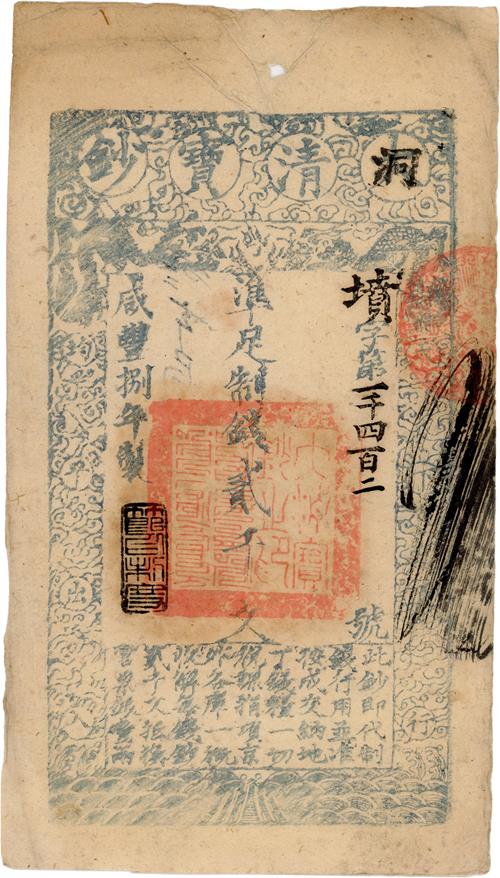 洞清寶鈔
墳字第一千四百二號
準足制錢貳千文
咸豐捌年製
此鈔即代制
錢行用並准
按成交納地
丁錢糧一切
稅課捐項京
外各庫一概
收解每錢鈔
貳千文抵換
官票銀壹兩
行
出入